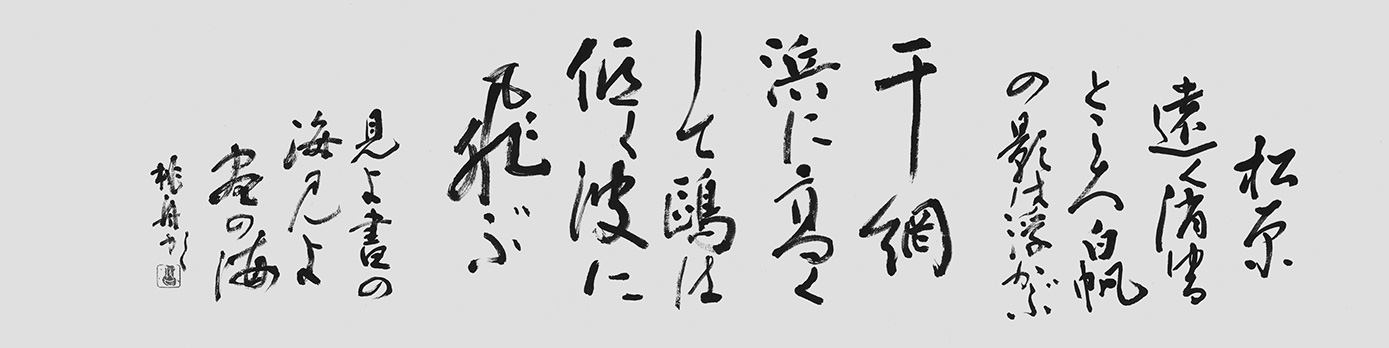 松原
遠く消ゆる
ところ白帆
の影は浮かぶ
干網
浜に高く
して鴎は
低く波に
飛ぶ
見よ晝の
海見よ
昼の海